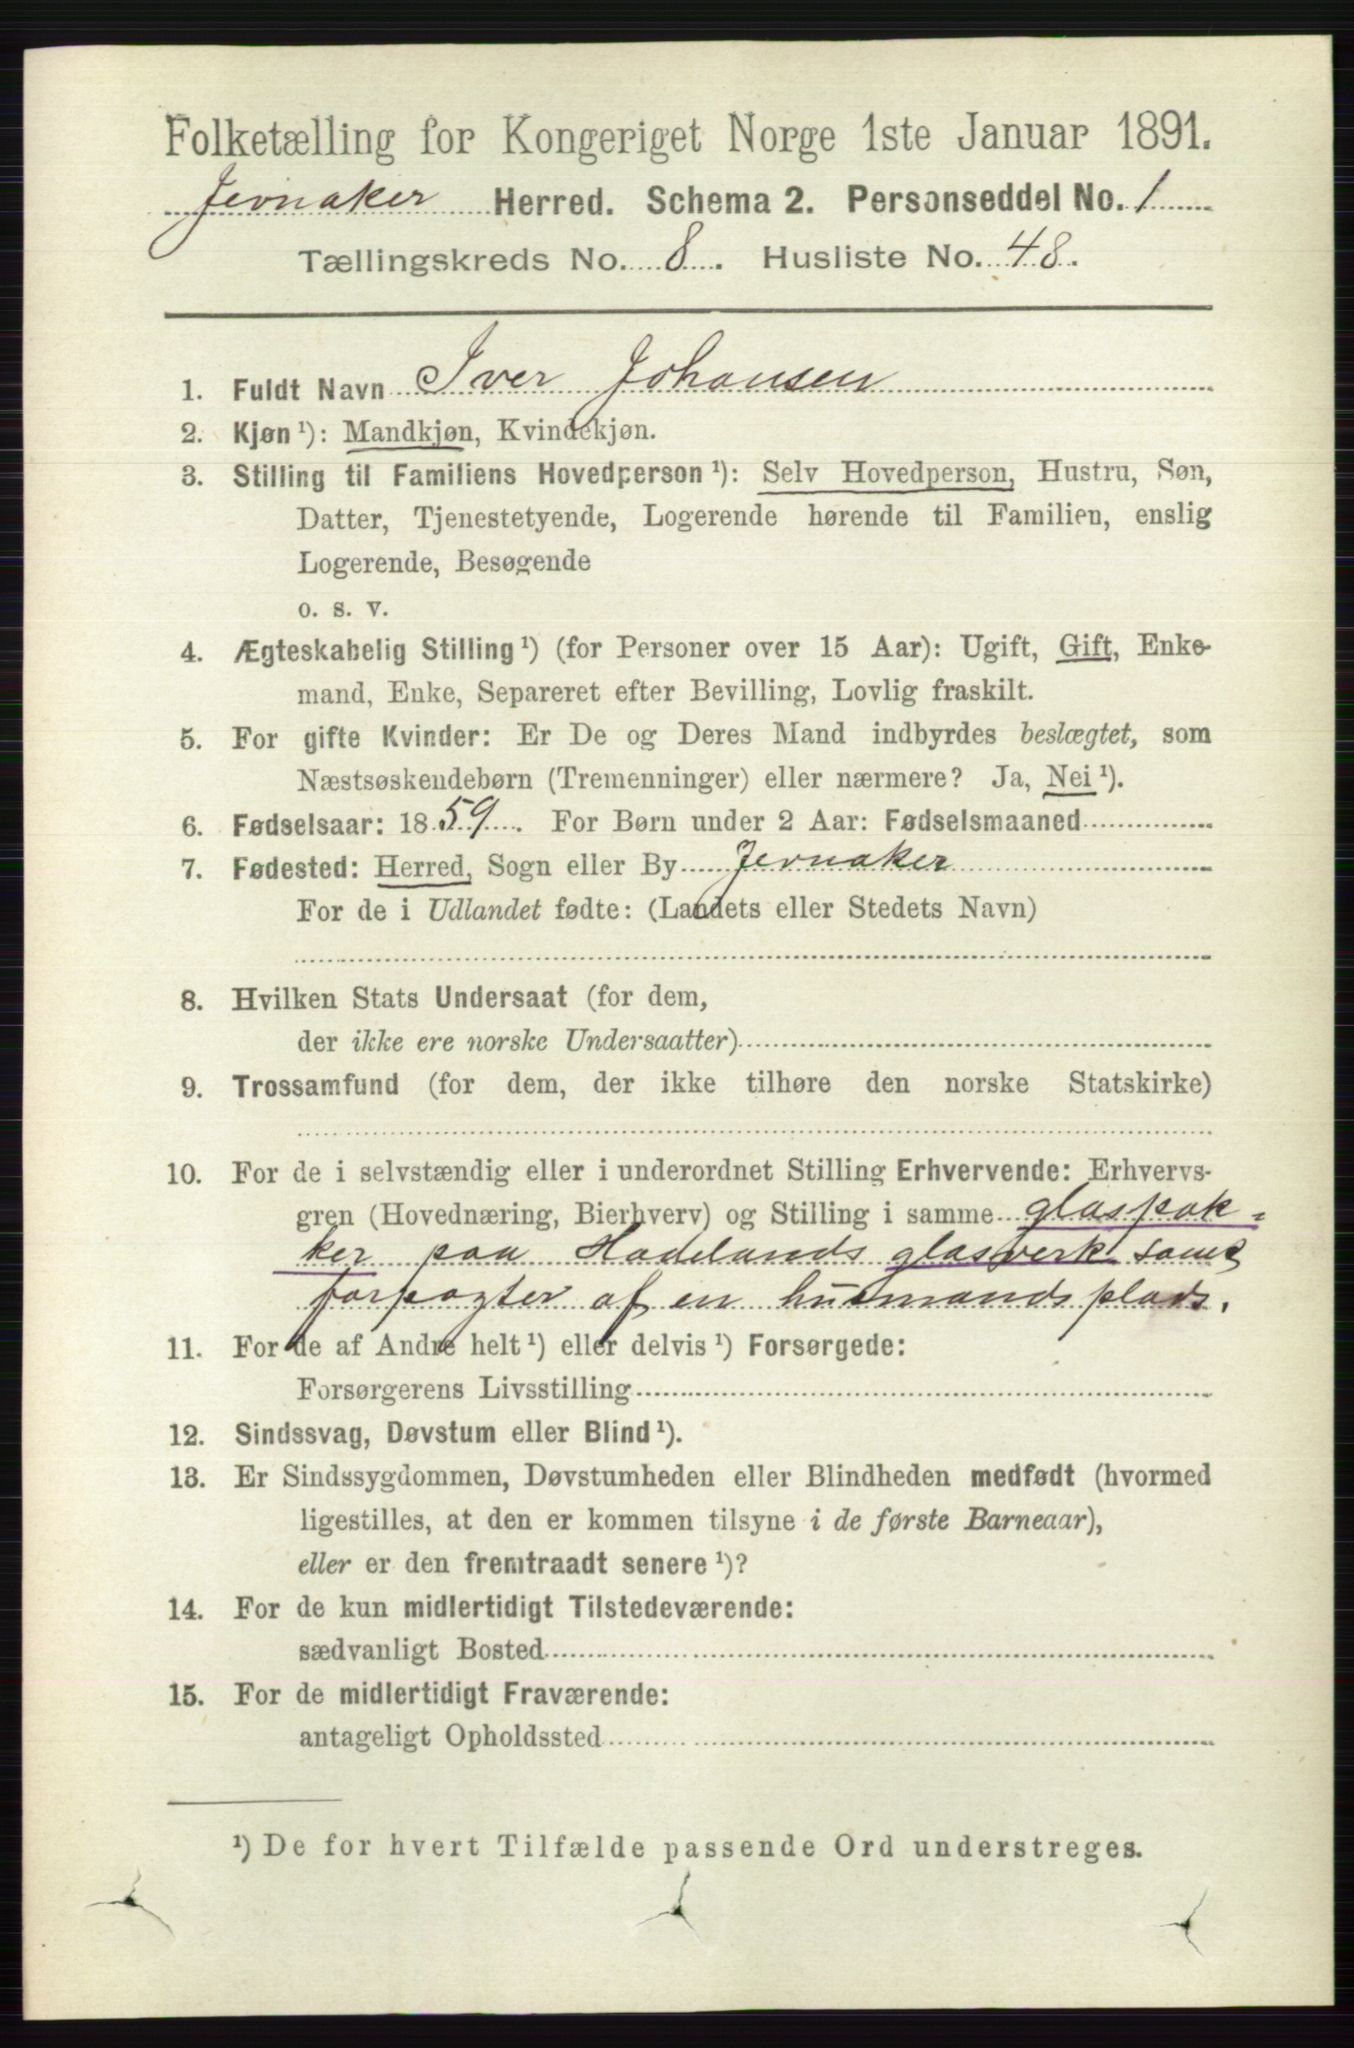 Folketælling for Kongeriget Norge 1ste Januar 1891.
Jevnaker Herred. Schema 2. Personseddel No. 1
Tællingskreds No. 8. Husliste No. 48.
1. Fuldt Navn Iver Johansen
2. Kjøn ¹): Mandkjøn, Kvindekjøn.
3. Stilling til Familiens Hovedperson ¹): Selv Hovedperson, Hustru, Søn,
Datter, Tjenestetyende, Logerende hørende til Familien, enslig
Logerende, Besøgende
o. s. v.
4. Ægteskabelig Stilling ¹) (for Personer over 15 Aar): Ugift, Gift, Enke-
mand, Enke, Separeret efter Bevilling, Lovlig fraskilt.
5. For gifte Kvinder: Er De og Deres Mand indbyrdes beslægtet, som
Næstsøskendebørn (Tremenninger) eller nærmere? Ja, Nei ¹).
6. Fødselsaar: 1859. For Børn under 2 Aar: Fødselsmaaned
7. Fødested: Herred, Sogn eller By Jevnaker
For de i Udlandet fødte: (Landets eller Stedets Navn)
8. Hvilken Stats Undersaat (for dem,
der ikke ere norske Undersaatter)
9. Trossamfund (for dem, der ikke tilhøre den norske Statskirke)
10. For de i selvstændig eller i underordnet Stilling Erhvervende: Erhvervs-
gren (Hovednæring, Bierhverv) og Stilling i samme glaspak-
ker paa Hadelands glasverk samt
forpagter af en husmandsplads.
11. For de af Andre helt ¹) eller delvis ¹) Forsørgede:
Forsørgerens Livsstilling
12. Sindssvag, Døvstum eller Blind ¹).
13. Er Sindssygdommen, Døvstumheden eller Blindheden medfødt (hvormed
ligestilles, at den er kommen tilsyne i de første Barneaar),
eller er den fremtraadt senere ¹)?
14. For de kun midlertidigt Tilstedeværende:
sædvanligt Bosted
15. For de midlertidigt Fraværende:
antageligt Opholdssted
¹) De for hvert Tilfælde passende Ord understreges.